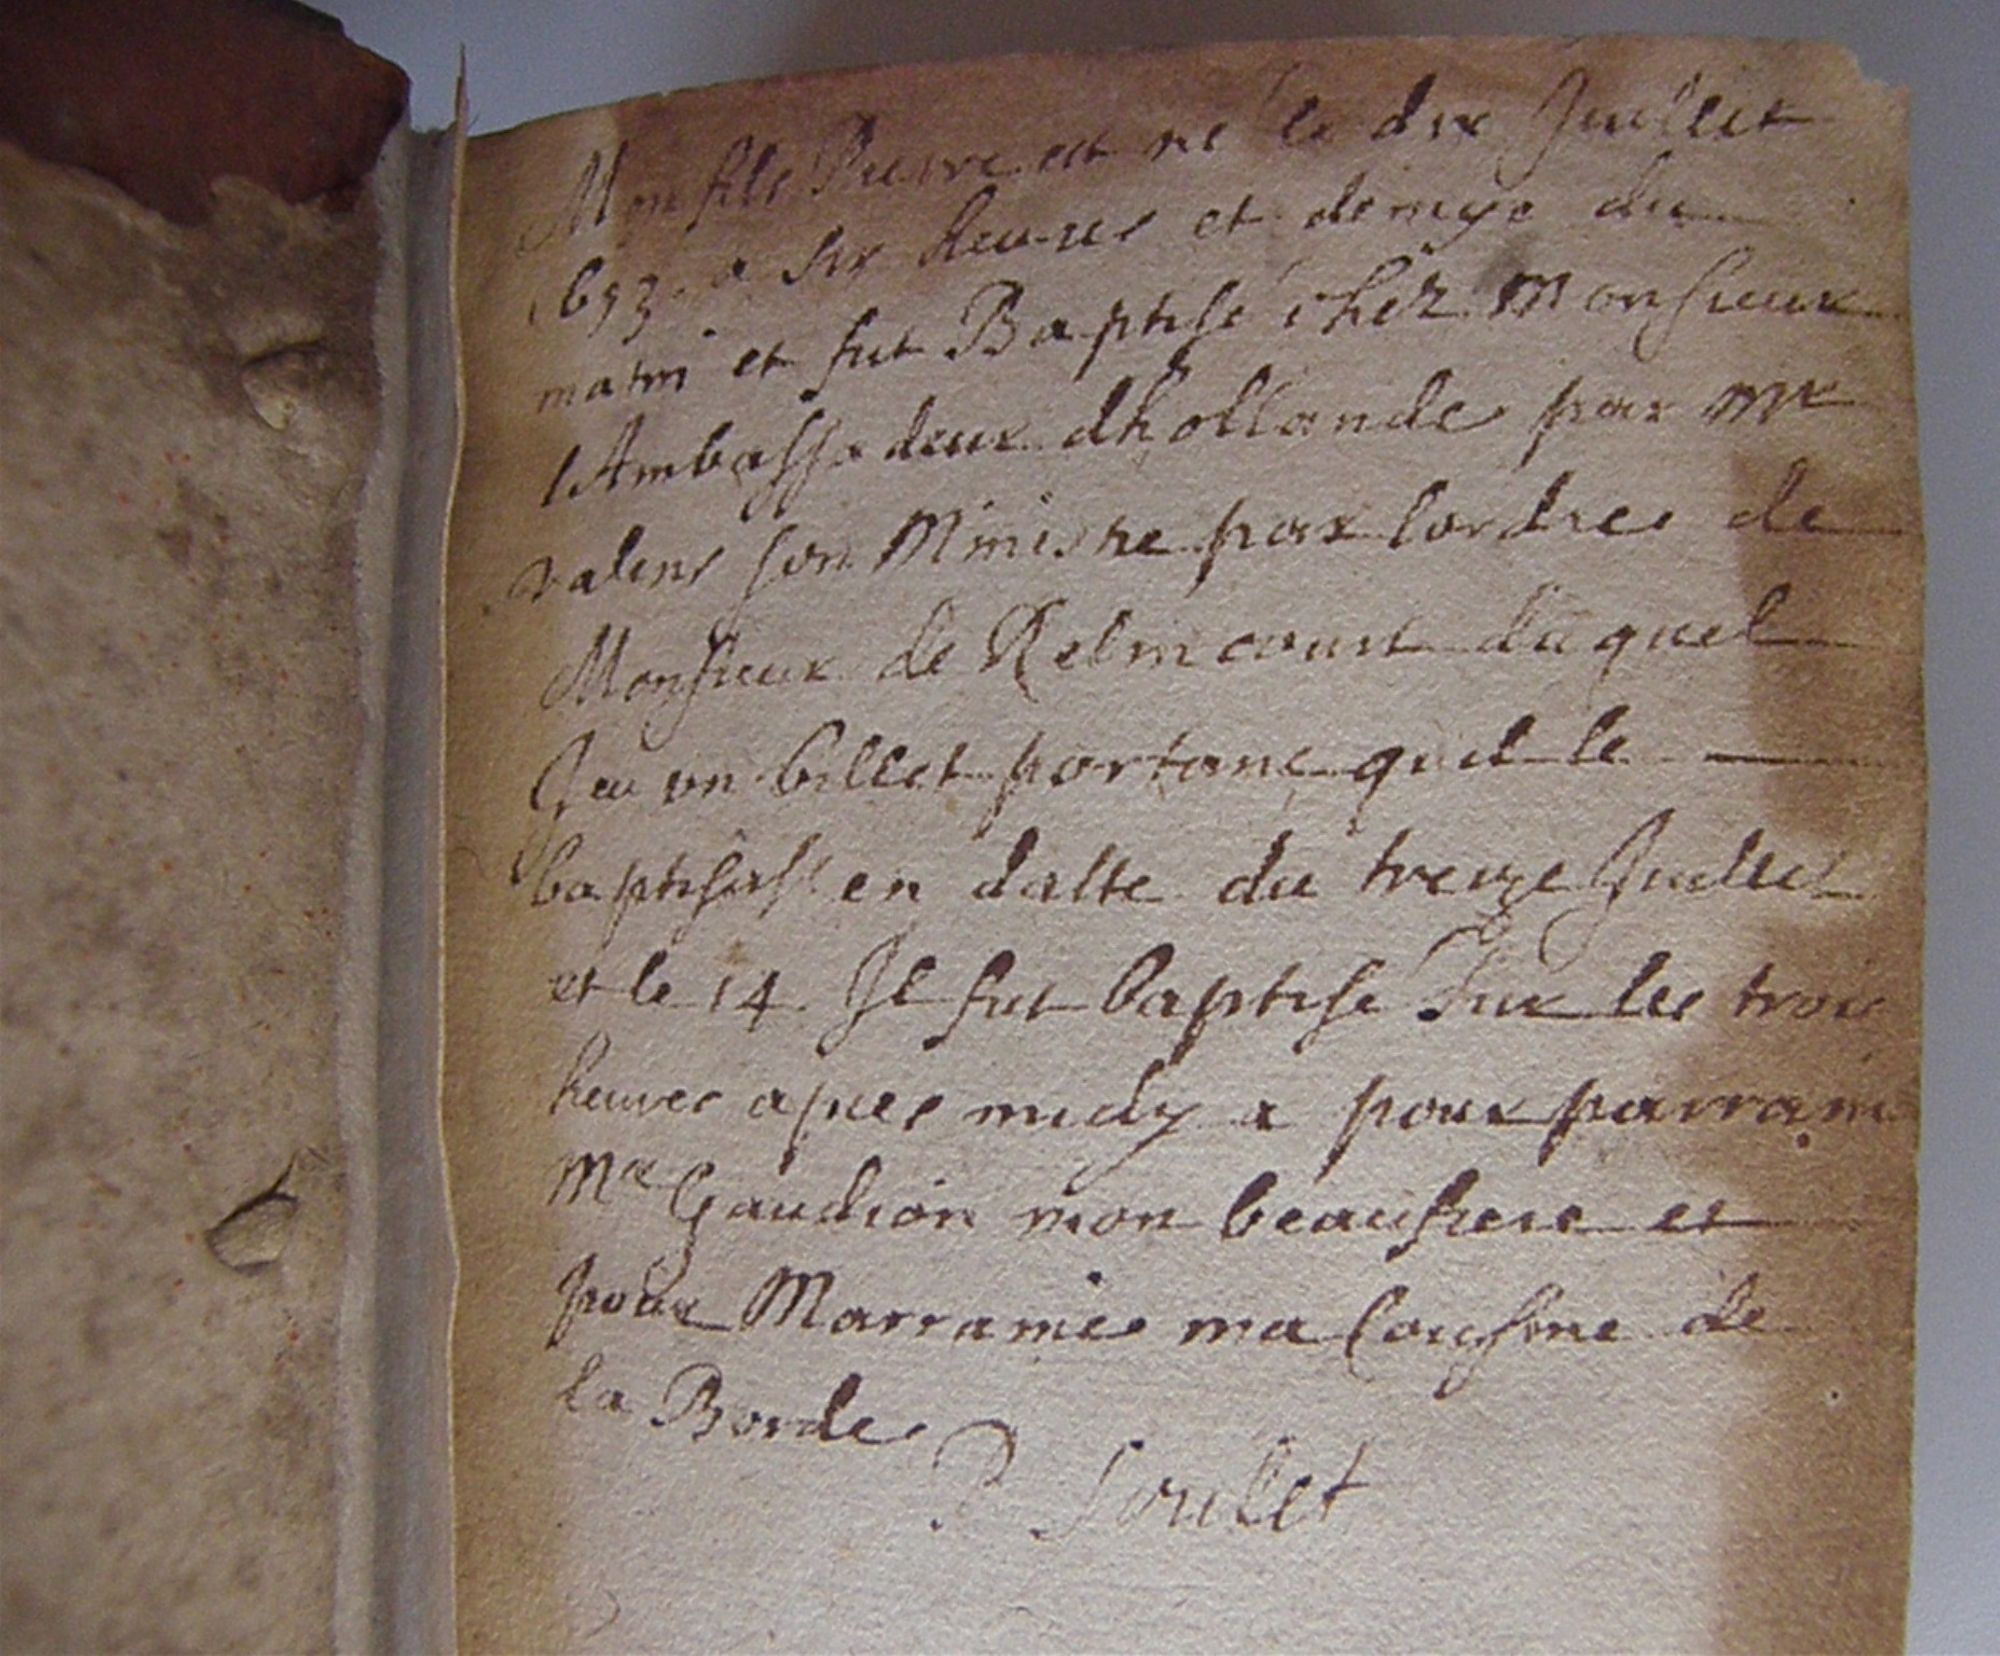 Mon fils Pierre est né le dix Juillet
1653. a six heures et demye du
matin et fut Baptisé chez Monsieur
l'Ambassadeur dhollande par Mr
valens son Ministre par lordre de
Monsieur de Relincourt duquel
Jeu un billet portant quil le
baptisast en datte du treize Juillet
et le 14 Jl fut baptisé sur les trois
heures apres midy a pour parrain
Mr Gaudion mon beaufrere et
pour Marraine ma Cousine de
la Borde
P Soulet